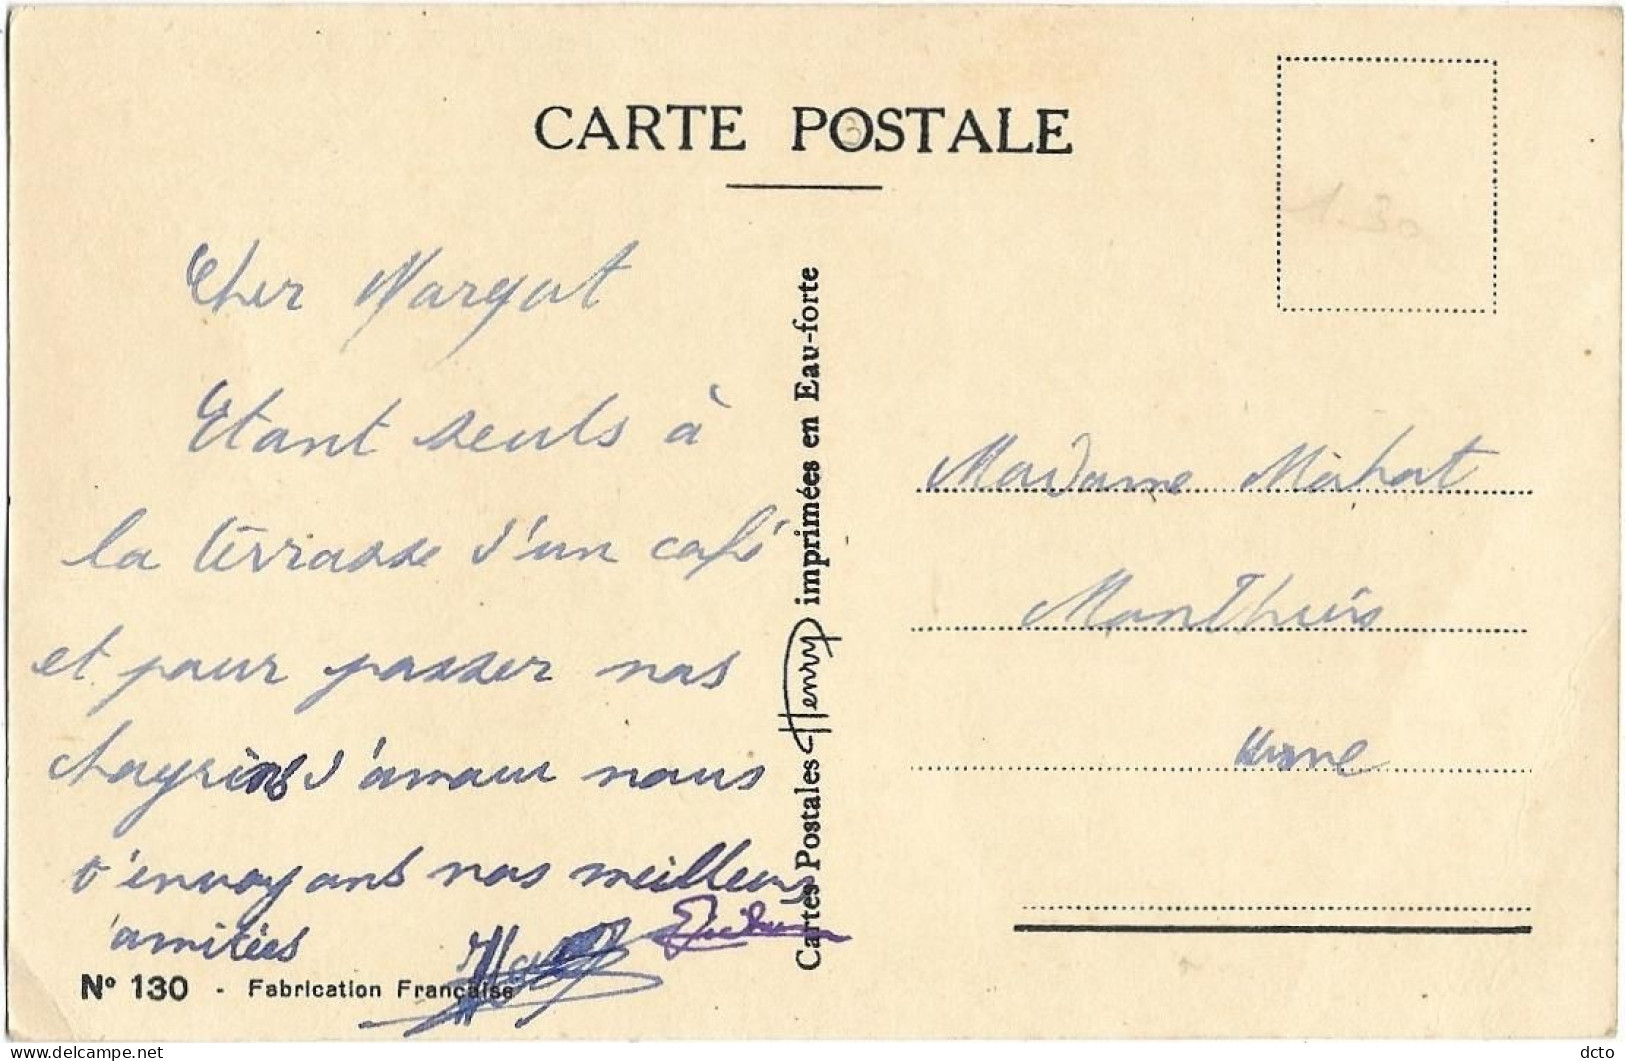 CARTE POSTALE
Cher Margot
Etant seuls à
la terrasse d'un café
et pour passer nos
chagrins d'amour nous
t'envoyons nos meilleurs
amitiés
N° 130 - Fabrication Française
Cartes Postales Henry imprimées en Eau-forte
Madame Mahat
Monthuis
delcampe.net
dcto